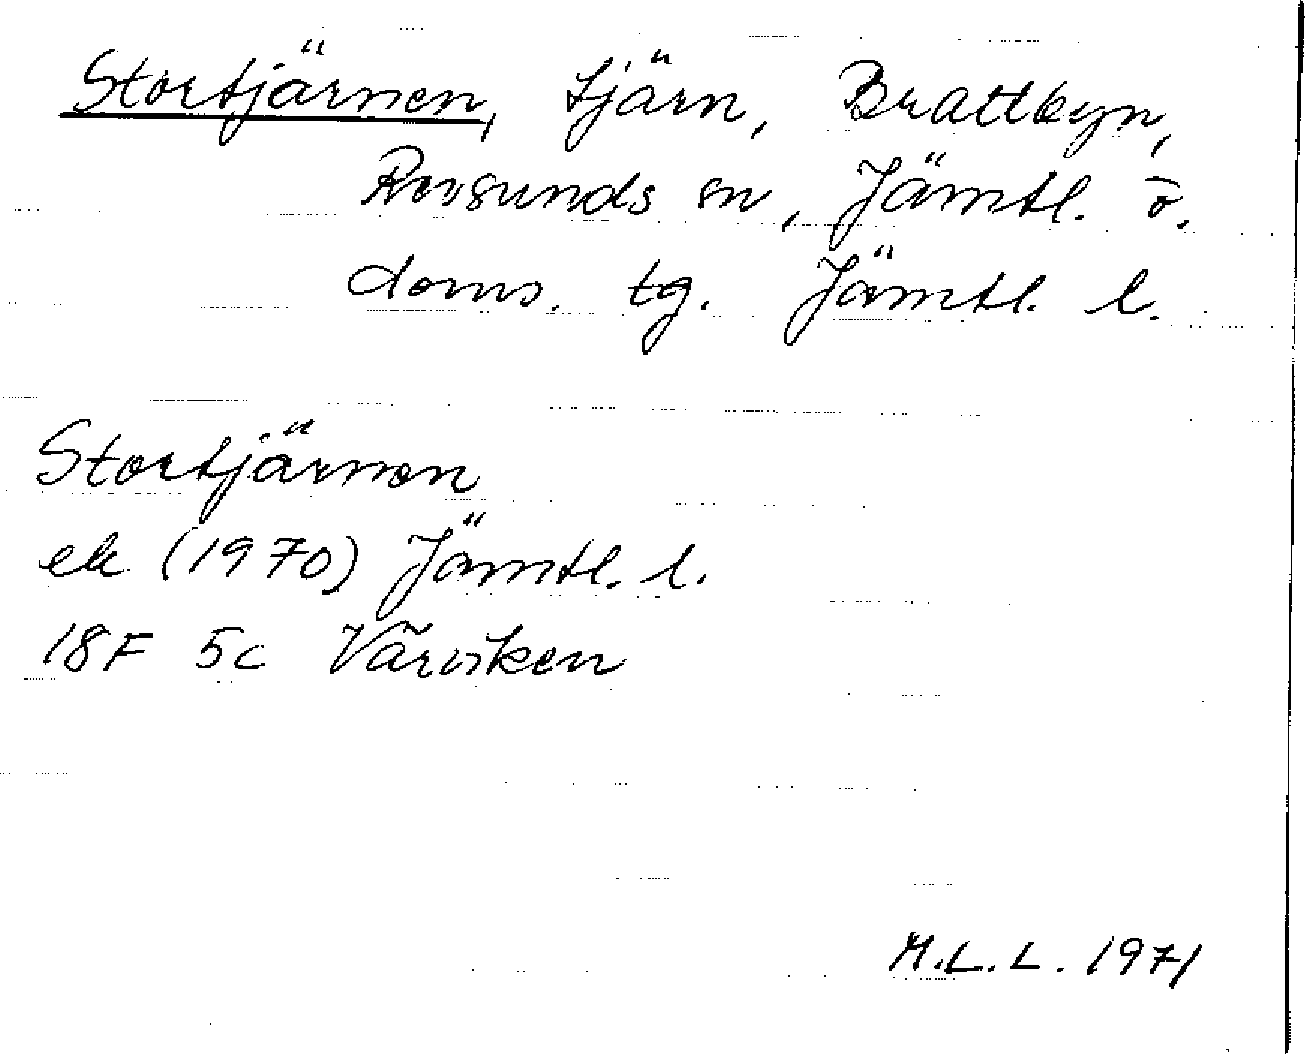 Stortjärnen, tjärn, Brattbyn,
Revsunds sn, Jämtl. ö.
doms. tg. Jämtl. l.
Stortjärnen
ek (1970) Jämtl. l.
18F 5c Värviken
M.L.L. 1971